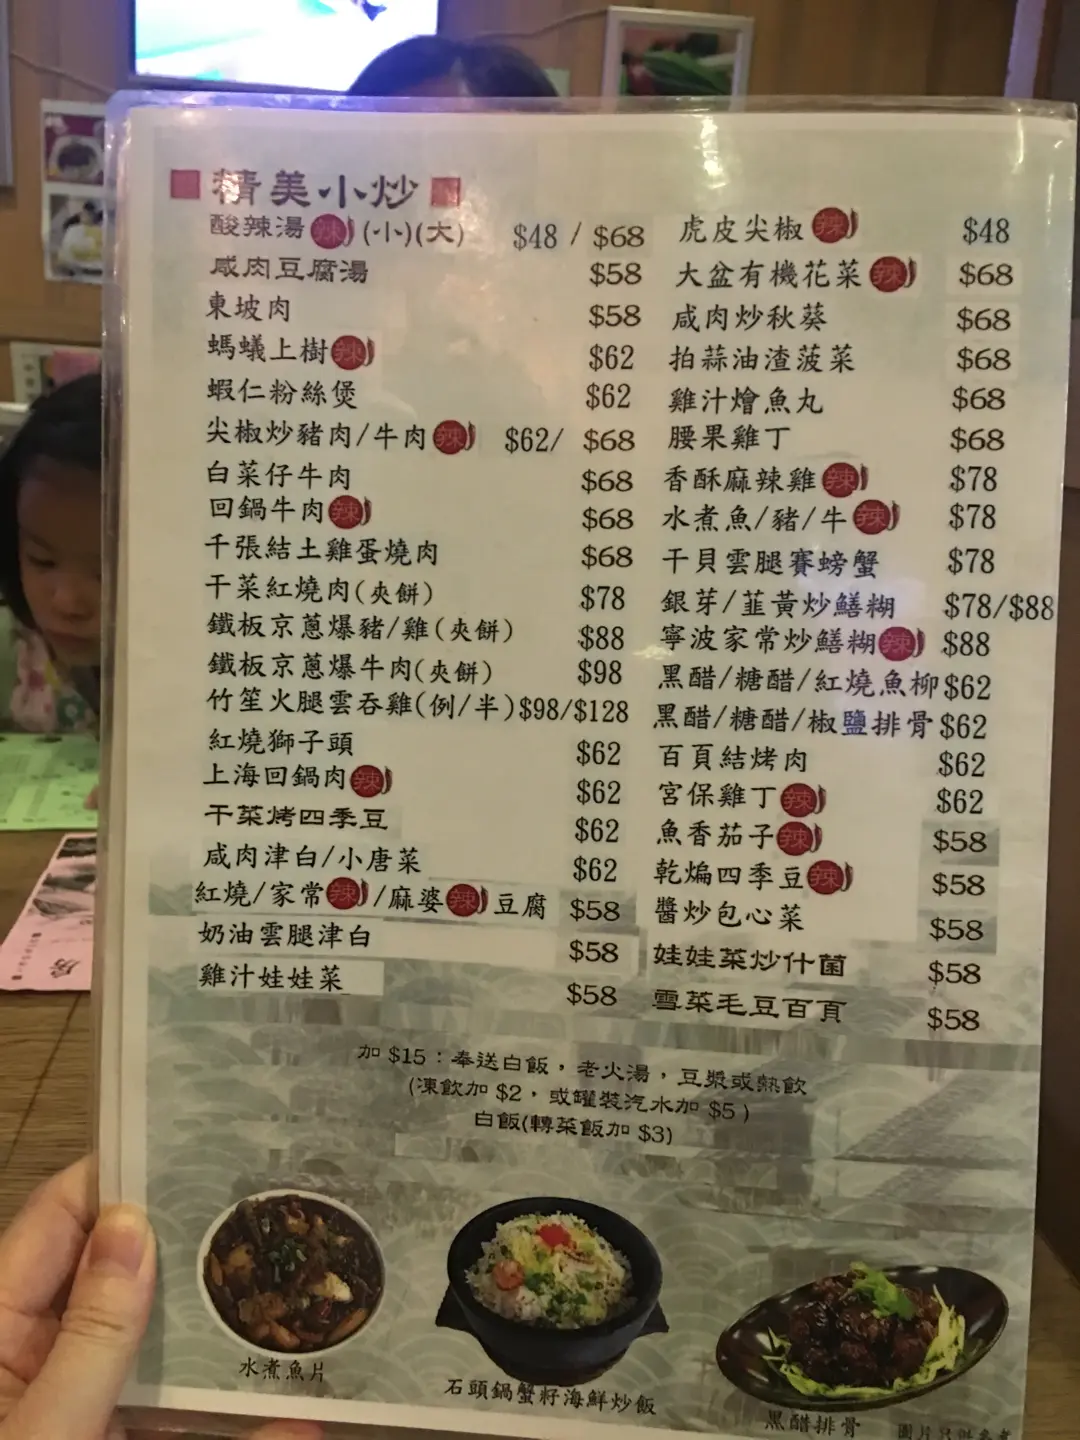 精美小炒
酸辣湯辣 (小)(大) $48 / $68
咸肉豆腐湯 $58
東坡肉 $58
螞蟻上樹辣 $62
蝦仁粉絲煲 $62
尖椒炒豬肉/牛肉辣 $62/ $68
白菜仔牛肉 $68
回鍋牛肉辣 $68
千張結土雞蛋燒肉 $68
干菜紅燒肉(夾餅) $78
鐵板京蔥爆豬/雞(夾餅) $88
鐵板京蔥爆牛肉(夾餅) $98
竹笙火腿雲吞雞(例/半) $98/$128
紅燒獅子頭 $62
上海回鍋肉辣 $62
干菜烤四季豆 $62
咸肉津白/小唐菜 $62
紅燒/家常辣/麻婆辣豆腐 $58
奶油雲腿津白 $58
雞汁娃娃菜 $58
虎皮尖椒辣 $48
大盆有機花菜辣 $68
咸肉炒秋葵 $68
拍蒜油渣菠菜 $68
雞汁燴魚丸 $68
腰果雞丁 $68
香酥麻辣雞辣 $78
水煮魚/豬/牛辣 $78
干貝雲腿賽螃蟹 $78
銀芽/韮黃炒鱔糊 $78/$88
寧波家常炒鱔糊辣 $88
黑醋/糖醋/紅燒魚柳 $62
黑醋/糖醋/椒鹽排骨 $62
百頁結烤肉 $62
宮保雞丁辣 $62
魚香茄子辣 $58
乾煸四季豆辣 $58
醬炒包心菜 $58
娃娃菜炒什菌 $58
雪菜毛豆百頁 $58
加 $15：奉送白飯，老火湯，豆漿或熱飲
(凍飲加 $2，或罐裝汽水加 $5)
白飯(轉菜飯加 $3)
水煮魚片
石頭鍋蟹籽海鮮炒飯
黑醋排骨